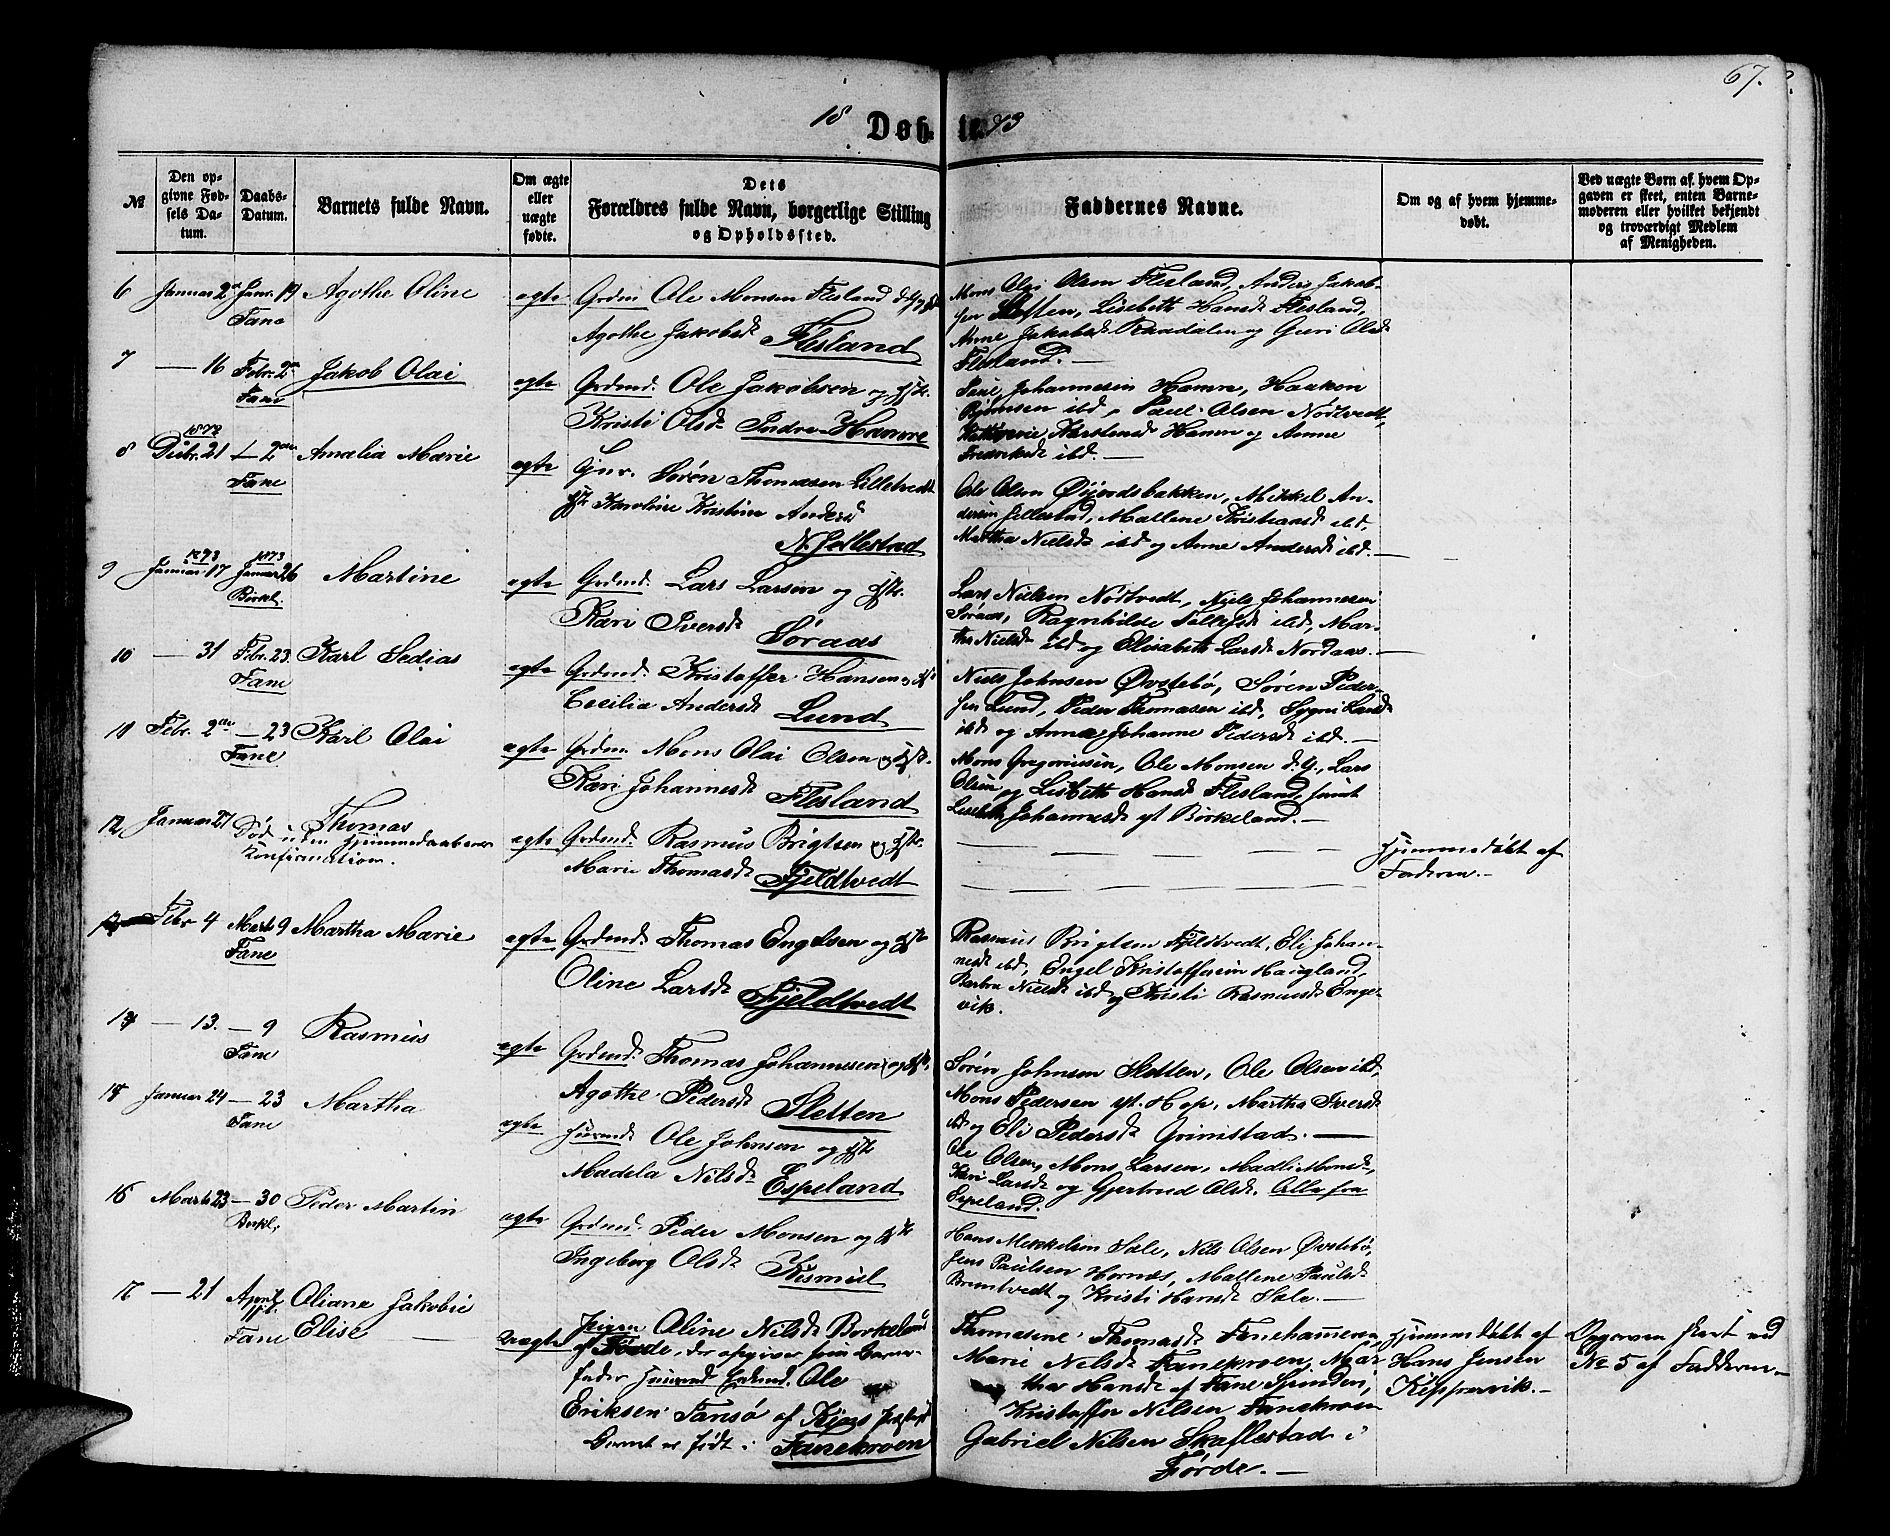 67.
18 Døbte. 73
№
Den opgivne Fødsels Datum.
Daabs-Datum.
Barnets fulde Navn.
Om ægte eller uægte fødte.
Dets Forældres fulde Navn, borgerlige Stilling og Opholdssted.
Faddernes Navne.
Om og af hvem hjemmedøbt.
Ved uægte Børn af hvem Opgaven er skeet, enten Barnemoderen eller hvilket bekjendt og troværdigt Medlem af Menigheden.
6 Januar 2 Janr. 19 Agothe Oline
Fane
ægte Grdm. Ole Monsen Flesland d. y. og
Agothe Jakobsd. Flesland
Mons Olai Olsen Flesland, Anders Jakob-
sen Sletten, Lisebeth Hansd. Flesland,
Anne Jakobsd. Raadalen og Guri Olsd.
Flesland. —
7 — 16 Febr. 2 Jakob Olai
Fane
ægte Grdmd. Ole Jakobsen og Hst.
Kristi Olsd. Indre-Hamre
Paul Johannesen Hamre, Haakon
ibd, Paul Olsen Nødtvedt,
Karstensd. Hamre og Anne
Fredriksd. ibd. —
1872
8 Decbr. 21 — 2 Amalia Marie
Fane
ægte Søren Thomassen Lilletvedt
Karoline Kristine Andersd.
N. Jellestad
Ole Olsen Øivindsbakken, Mikkel An-
dersen Jellestad, Mallene Kristiansd. ibd,
Martha Nielsd. ibd og Anne Andersd. ibd. —
1873 1873
9 Januar 17 Januar 26 Martine
Birkl.
ægte Grdmd. Lars Larsen og Hst.
Kari Iversd. Søraas
Lars Nielsen Nødtvedt, Niels Johannesen
Søraas, Ragnhilde ibd, Mar-
tha Nielsd. ibd og Elisabeth Larsd. Nordaas. —
10 — 31 Febr. 23. Karl Sedias
Fane
ægte Grdmd. Kristoffer Hansen og Hst
Cecilia Andersd. Lund
Niels Johnsen Øvstebø, Søren Peder-
sen Lund, Peder Thomasen ibd, Larsd.
ibd og Anna Johanne Pedersd. ibd. —
11 Febr. 2 — 23 Karl Olai
Fane
ægte Grdm. Mons Olai Olsen og Hst.
Kari Johannesd. Flesland
Mons Gregoriusen, Ole Monsen d. y., Lars
Olsen og Lisbeth Hansd. Flesland, samt
Lisebeth Johannesd. yt. Birkeland. —
12, Januar 27 Thomas
Død uden Hjemmedaabens
Konfirmation.
ægte Grdmd. Rasmus Brigtsen og Hst.
Marie Thomasd. Fjeldtvedt
Hjemmedøbt af
Faderen. —
13 Febr 4 Marts 9 Martha Marie
Fane
ægte Grdmd. Thomas Engelsen og Hst
Oline Larsd. Fjeldtvedt
Rasmus Brigtsen Fjeldtvedt, Eli Johan-
nesd. ibd, Engel Kristoffersen Haugland,
Barbra Nielsd. ibd og Kristi Rasmusd. Enge-
vik.
14 — 13. — 9 Rasmus
Fane
ægte Grdmd. Thomas Johannesen og Hst.
Agothe Pedersd. Sletten
Søren Johnsen Sletten, Ole Olsen ibd,
Mons Pedersen yt. Hop, Martha Iversd.
ibd og Eli Pedersd. Grimstad. —
15 Januar 24 — 23 Martha
Fane
ægte Huusmd. Ole Johnsen og Hst
Madela Nilsd. Espeland
Ole Olsen, Mons Larsen, Madli Monsd.,
Kari Larsd. og Gjertrud Olsd. Alle fra
Espeland.
16 Marts 23 — 30 Peder Martin
Birkl.
ægte Grdmd. Peder Monsen og Hst
Ingeborg Olsd. Kismul
Hans Mikkelsen Hale, Nils Olsen Øvstebø,
Jens Paulsen Hornæs, Mallene Paulsd.
og Kristi Hansd. Hale. —
17 — 21 April Oliane Jakobie
Fane Elise —
uægte Pigen Oline Nilsd. Birkeland
af Førde, der opgiver som Barne-
fader Huusmd. Enkmd. Ole
Eriksen Tansø af Præstegj.
Barnet er født i Fanekroen
Thomasine Thomasd. Fanehamren,
Marie Nilsd. Fanekroen, Mar-
tha Hansd. af Fane
Kristoffer Nilsen Fanekroen
Gabriel Nilsen Skaflestad i
Førde. —
Hjemmedøbt af
Hans Jensen
Kippervik. —
Opgaven skeet ved
№ 5 af Fadderne —